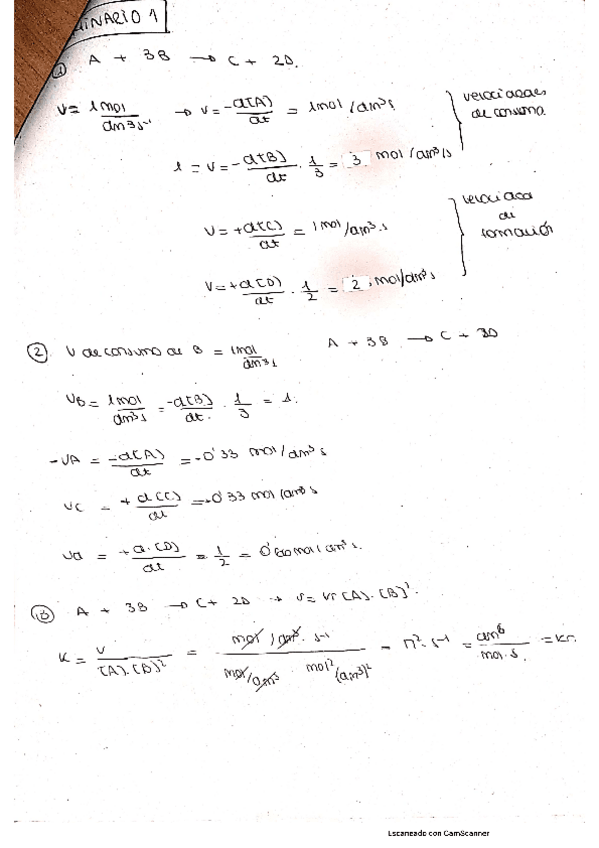 SEMINARIO 1
① A + 3B → C + 2D.
V = 1mol / dm³ s⁻¹ → v = -d[A]/dt = 1mol/dm³s } velocidades de consumo
1 = v = -d[B]/dt · 1/3 = 3 mol/dm³/s
V = +d[C]/dt = 1mol/dm³.s } velocidad de formación
V = +d[D]/dt · 1/2 = 2, mol/dm³s
② V de consumo de B = 1mol/dm³s A + 3B → C + 3D
VB = 1mol/dm³s = -d[B]/dt. · 1/3 = 1.
-VA = -d[A]/dt = -0'33 mol/dm³s
VC = +d[C]/dt = 0'33 mol/dm³s
Vd = +d.[D]/dt = 1/2 = mol/dm³s.
A + 3B → C + 2D → v = Kr[A].[B]².
K = V/[A].[B]² = mol/dm³.s⁻¹ / mol/dm³ mol²/(dm³)² = M⁻². s⁻¹ = dm⁶/mol.s = Kr.
Escaneado con CamScanner